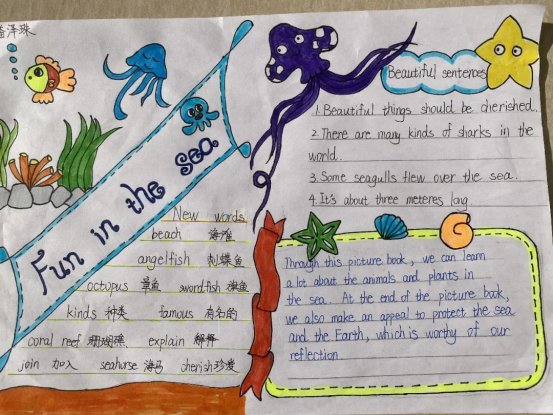 泽珠
Fun in the sea
New words
beach 海滩
angelfish 刺蝶鱼
octopus 章鱼 swordfish 旗鱼
kinds 种类 famous 有名的
coral reef 珊瑚礁 explain 解释
join 加入 seahorse 海马 cherish 珍爱
Beautiful sentences
1. Beautiful things should be cherished.
2. There are many kinds of sharks in the
world.
3. Some seagulls flew over the sea.
4. It's about three meteres long
Through this picture book, we can learn
a lot about the animals and plants in
the sea. At the end of the picture book,
we also make an appeal to protect the sea
and the Earth, which is worthy of our
reflection